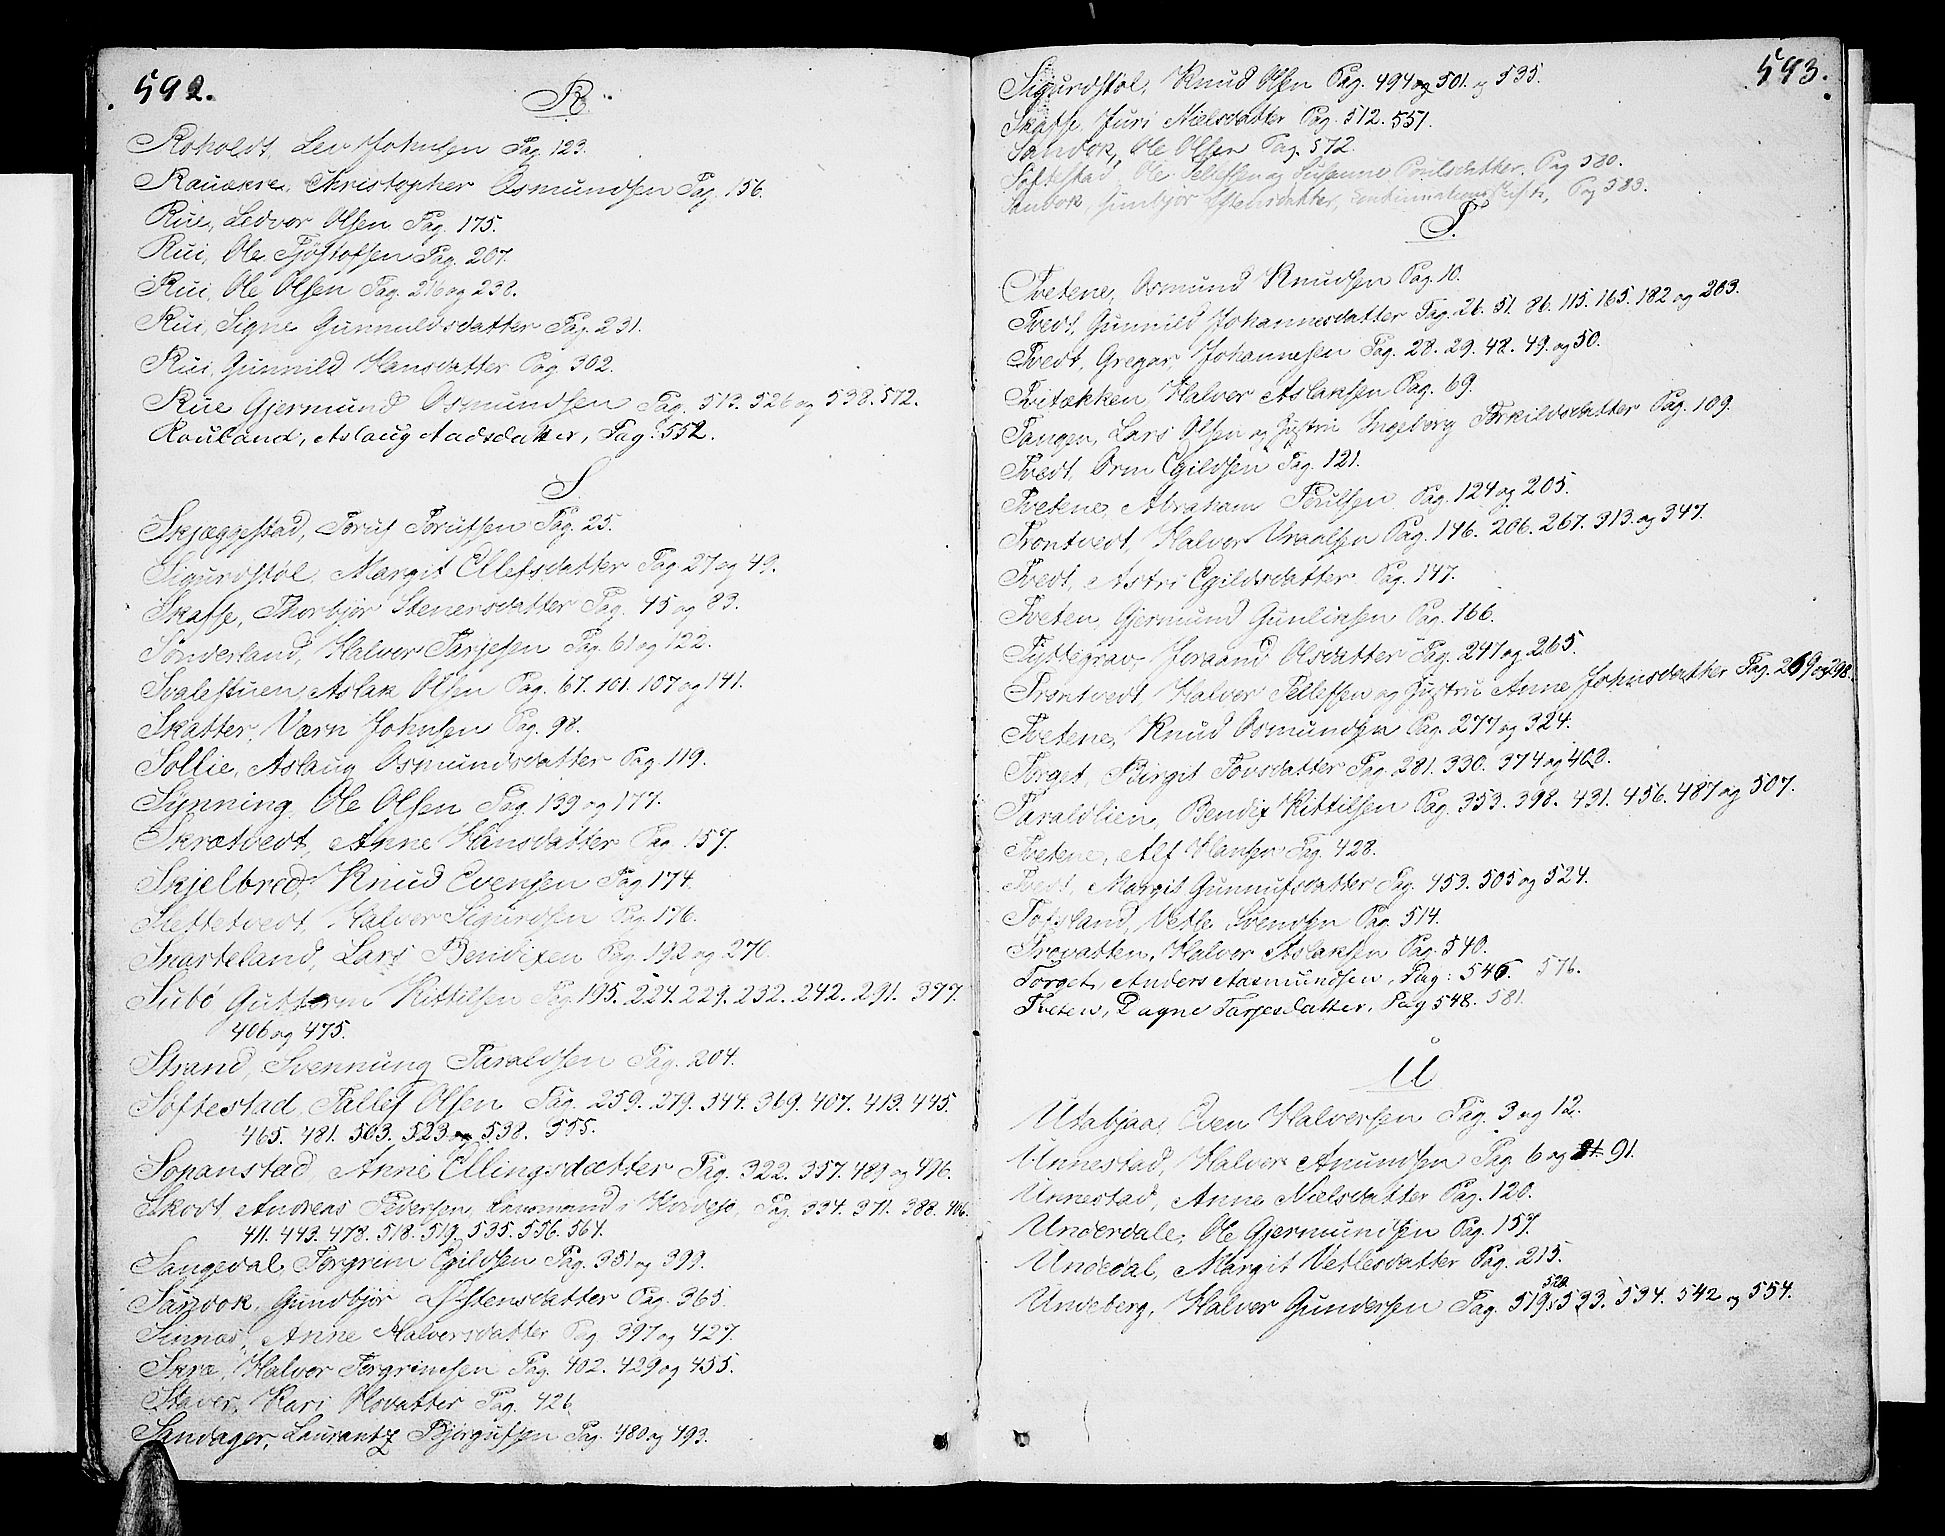 592.
R.
Roholdt, Lev Johnsen Pag. 123.
Rauakre, Christopher Osmundsen Pag. 156.
Rue, Ledvor Olsen Pag. 175.
Rui, Ole Tjøstofsen Pag. 207.
Rui, Ole Olsen Pag. 216 og 238.
Rui, Signe Gunnuldsdatter Pag. 231.
Rui, Gunnild Hansdatter Pag. 302.
Rue Gjermund Osmundsen Pag. 513. 526 og 538. 572.
Rouland, Aslaug Aadsdatter, Pag: 552.
S.
Skjæggestad, Toruf Torufsen Pag. 25.
Sigurdstøl, Margit Ellefsdatter Pag. 27 og 49.
Skaffe, Thorbjør Stenersdatter Pag. 45 og 83.
Sønderland, Halvor Tarjesen Pag. 61 og 122.
Svalestuen Aslak Olsen Pag. 67. 101. 107 og 141.
Skatter, Værn Johnsen Pag. 98.
Sollie, Aslaug Osmundsdatter Pag. 119.
Synning, Ole Olsen Pag. 139 og 177.
Skrætvedt, Anne Hansdatter Pag. 157.
Skjelbred, Knud Evensen Pag 174.
Slettetvedt, Halvor Sigurdsen Pag. 176.
Snarteland, Lars Bendixen Pag. 192 og 270.
Subø Guttorm Kittilsen Pag. 195. 224. 229. 232. 242. 291. 377.
406 og 475.
Strand, Svennung Taraldsen Pag. 204.
Søftestad, Tallef Olsen Pag. 259. 279. 344. 369. 407. 413. 445.
465. 481. 503. 523 og 538. 555.
Sopanstad, Anne Ellingsdatter Pag. 322. 357. 489 og 496.
Skodt, Andreas Pedersen, Lensmand i Hvidesø, Pag. 334. 371. 388. 406.
411. 443. 478. 518. 519. 535. 556. 564.
Sangedal, Torgrim Egildsen Pag. 351 og 399.
Sandok, Gundbjør Østensdatter Pag. 365.
Sinnas, Anne Halvorsdatter Pag. 397 og 427.
Skræ, Halvor Torgrimsen Pag. 402. 429 og 455.
Staver, Kari Olsdatter Pag. 426.
Sandager, Laurantz Bjørgufsen Pag. 480 og 493.
593.
Sigurdstøl, Knud Olsen Pag. 494 og 501. og 535.
Skaffe, Juri Nielsdatter Pag. 512. 551.
Sandok, Ole Olsen Pag. 572.
Søftestad, Ole Tellefsen og Susanne Poulsdatter, Pag 580.
Sandok, Gunbjør Østensdatter, Continuationsskifte, Pag 583.
T.
Tvetene, Osmund Knudsen Pag. 10.
Tvedt, Gunnild Johannesdatter Pag. 26. 51. 86. 115. 165. 182 og 203.
Tvedt, Gregar, Johannesen Pag. 28. 29. 48. 49. og 50.
Tvitækken Halvor Aslaksen Pag. 69.
Tangen, Lars Olsen og Hustru Ingeborg Torkildsdatter Pag. 109.
Tvedt, Orm Egildsen Pag. 121.
Tvetene, Abraham Poulsen Pag. 124 og 205.
Trontvedt, Halvor Vraalsen Pag. 146. 206. 267. 313. og 347.
Tvedt, Astri Egildsdatter Pag. 147.
Tveten, Gjermund Gunleiksen Pag. 166.
Tyttegrav Joraand Olsdatter Pag. 247 og 265.
Trontvedt, Halvor Tellefsen og Hustru Anne Johnsdatter Pag. 269 og 298.
Tvetene, Knud Osmundsen Pag. 277 og 324.
Torget, Birgit Tovsdatter Pag. 281. 330. 374 og 408.
Taraldlien, Bendix Kittilsen Pag. 353. 398. 431. 456. 487 og 507.
Tvetene, Alf Hansen Pag. 428.
Tvedt, Margit Gunnufsdatter Pag. 453. 505 og 524.
Tofsland, Vetle Svendsen Pag. 514.
Trovatten, Halvor Aslaksen Pag. 540.
Torget, Anders Aasmundsen, Pag: 546. 576.
Tveten, Dagne Tarjesdatter, Pag 548. 581.
U
Utabjaa, Even Halvorsen Pag. 3 og 12.
Unnestad, Halvor Anundsen Pag. 6 og 91.
Unnestad, Anne Nielsdatter Pag. 120.
Underdale, Ole Gjermundsen Pag. 157.
Undedal, Margit Vetlesdatter Pag. 215.
Undeberg, Halvor Gundersen Pag. 519. 520. 533. 534. 542 og 554.